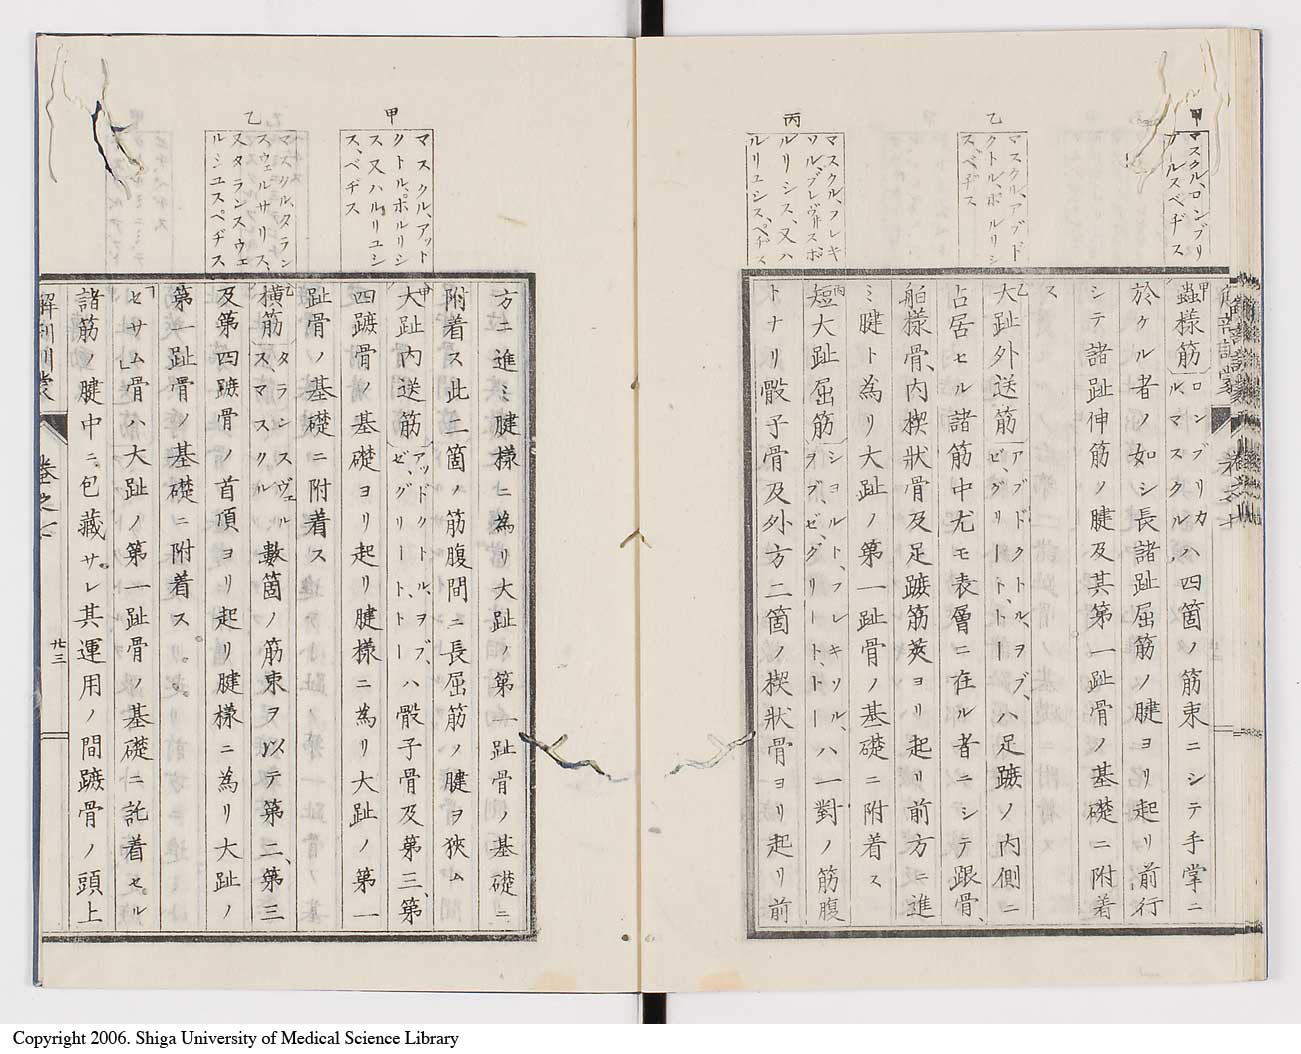 甲
マスクル、ロンブリ
カルスペヂス
乙
マスクル、アブド
クトル、ポルリシ
ス、ペヂス
丙
マスクル、フレキ
ソル、ブレヴィスポ
ルリシス、又ハ
ルリユシス、ペヂス
甲蟲樣筋ロンブリカルマスクル、ハ四箇ノ筋束ニシテ手掌ニ
於ケル者ノ如シ長諸趾屈筋ノ腱ヨリ起リ前行
シテ諸趾伸筋ノ腱及其第一趾骨ノ基礎ニ附着
ス
乙大趾外送筋アブドクトル、ヲブ、ゼ、グリートトー、ハ足蹠ノ內側ニ
占居セル諸筋中尤モ表層ニ在ル者ニシテ跟骨、
舶樣骨、內楔狀骨及足蹠筋莢ヨリ起リ前方ニ進
ミ腱ト為リ大趾ノ第一趾骨ノ基礎ニ附着ス
丙短大趾屈筋ショルト、フレキソル、ヲブ、ゼ、グリート、トー、ハ一對ノ筋腹
トナリ骰子骨及外方二箇ノ楔狀骨ヨリ起リ前
甲
マスクル、アット
クトル、ポルリシ
ス又ハルリユシ
ス、ペヂス
乙
マスクル、タラン
スウェルサリス、
又タランスウェ
ルシユスペヂス
方ニ進ミ腱樣ニ為リ大趾ノ第一趾骨ノ基礎ニ
附着ス此二箇ノ筋腹間ニ長屈筋ノ腱ヲ狹ム
甲大趾內送筋アッドクトル、ヲブ、ゼ、グリート、トー、ハ骰子骨及第三、第
四蹠骨ノ基礎ヨリ起リ腱樣ニ為リ大趾ノ第一
趾骨ノ基礎ニ附着ス
乙橫筋タランスヴェルス、マスクル數箇ノ筋束ヲ以テ第二、第三
及第四蹠骨ノ首頂ヨリ起リ腱樣ニ為リ大趾ノ
第一趾骨ノ基礎ニ附着ス
セサム骨ハ大趾ノ第一趾骨ノ基礎ニ託着セル
諸筋ノ腱中ニ包藏サレ其運用ノ間蹠骨ノ頭上
解剖訓蒙
卷之七
廿三
Copyright 2006. Shiga University of Medical Science Library